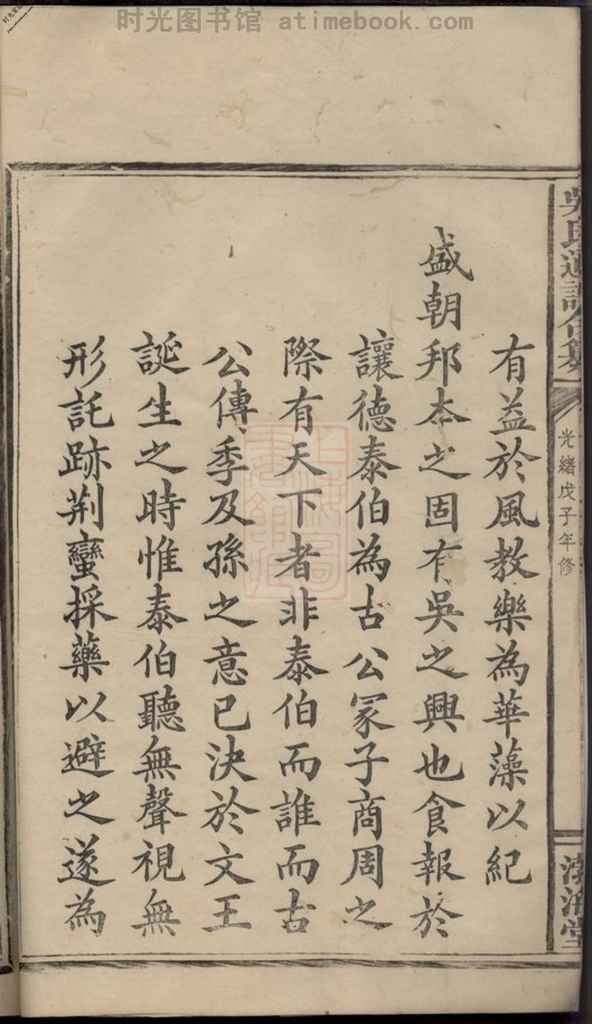 时光图书馆 atimebook.com
吳氏通譜合纂
光緒戊子年修
渤海堂
有益於風教樂為華藻以紀
盛朝邦本之固有吳之興也食報於
讓德泰伯為古公冢子商周之
際有天下者非泰伯而誰而古
公傳季及孫之意已決於文王
誕生之時惟泰伯聽無聲視無
形託跡荆蠻採藥以避之遂為